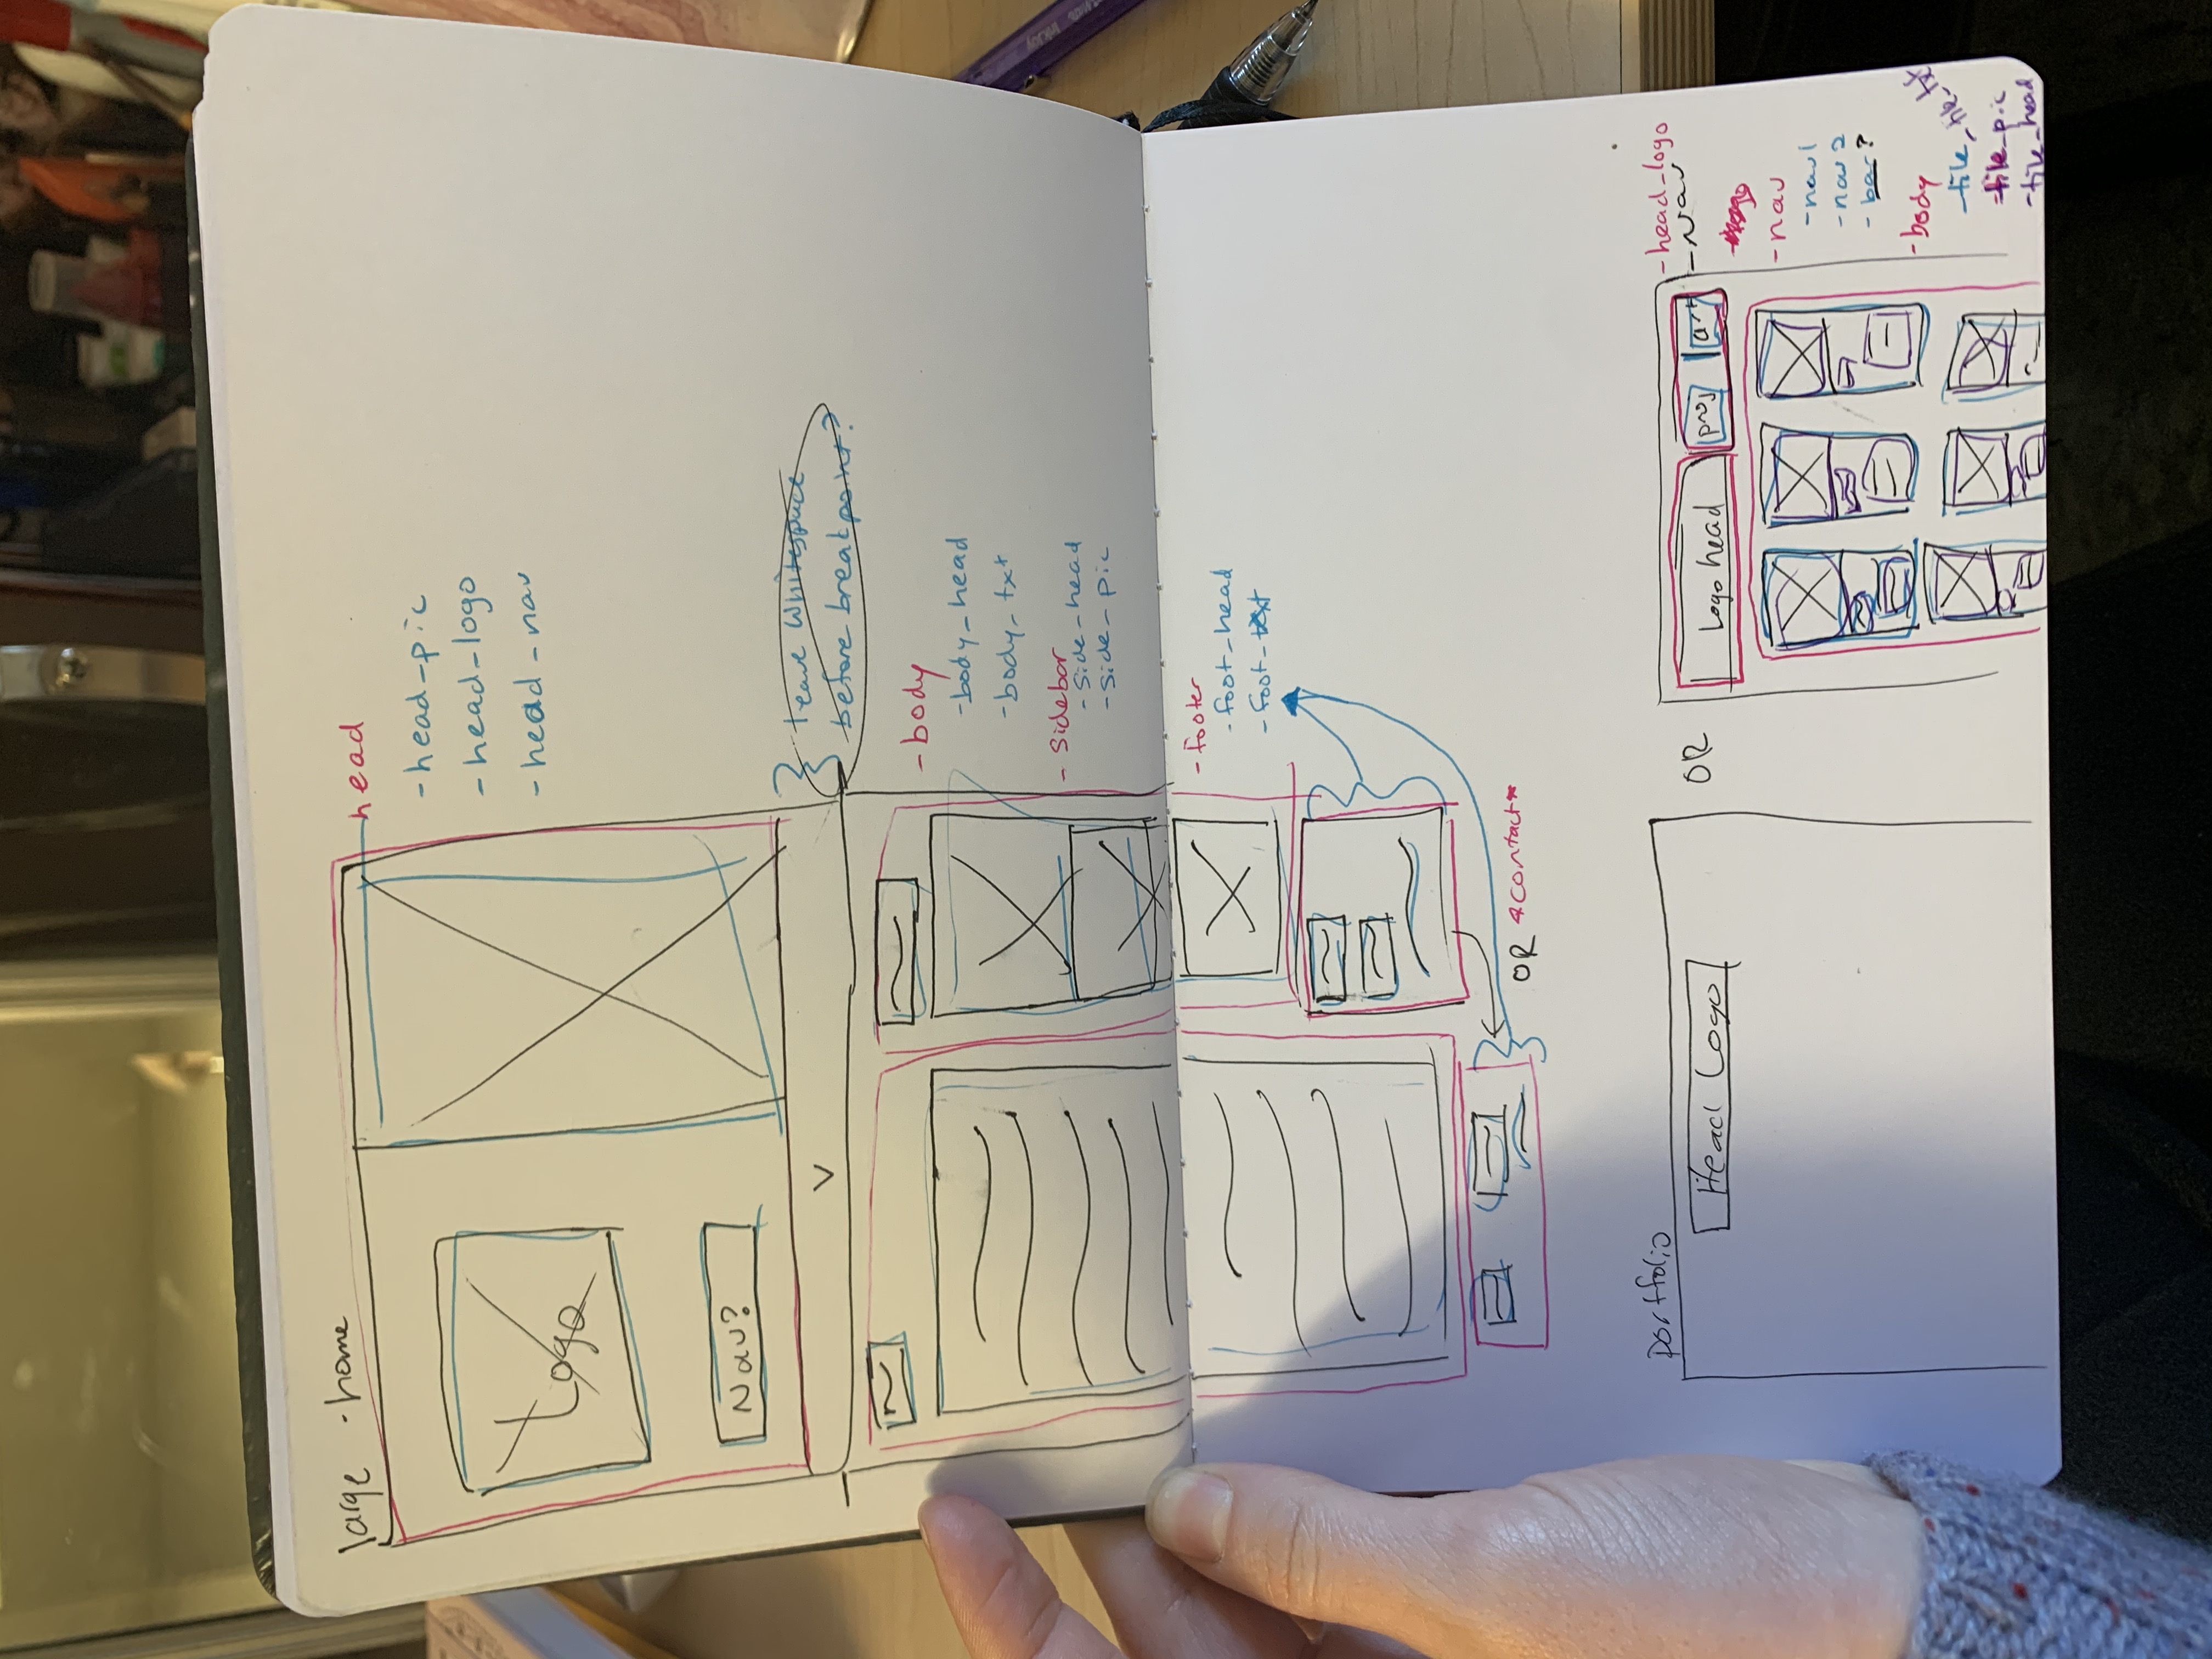 large - home
head
- head_pic
- head_logo
- head_nav
Logo
Nav?
V
leave Whitespace
before breakpoint?
- body
- body_head
- body_txt
- sidebar
- side_head
- side_pic
- footer
- foot_head
- foot_text
OR *contact*
Portfolio
Head Logo
OR
Logo head
proj
art
- head_logo
- Nav
- nav
- nav1
- nav 2
- bar?
- body
- tile
- tile_txt
- tile_pic
- tile_head